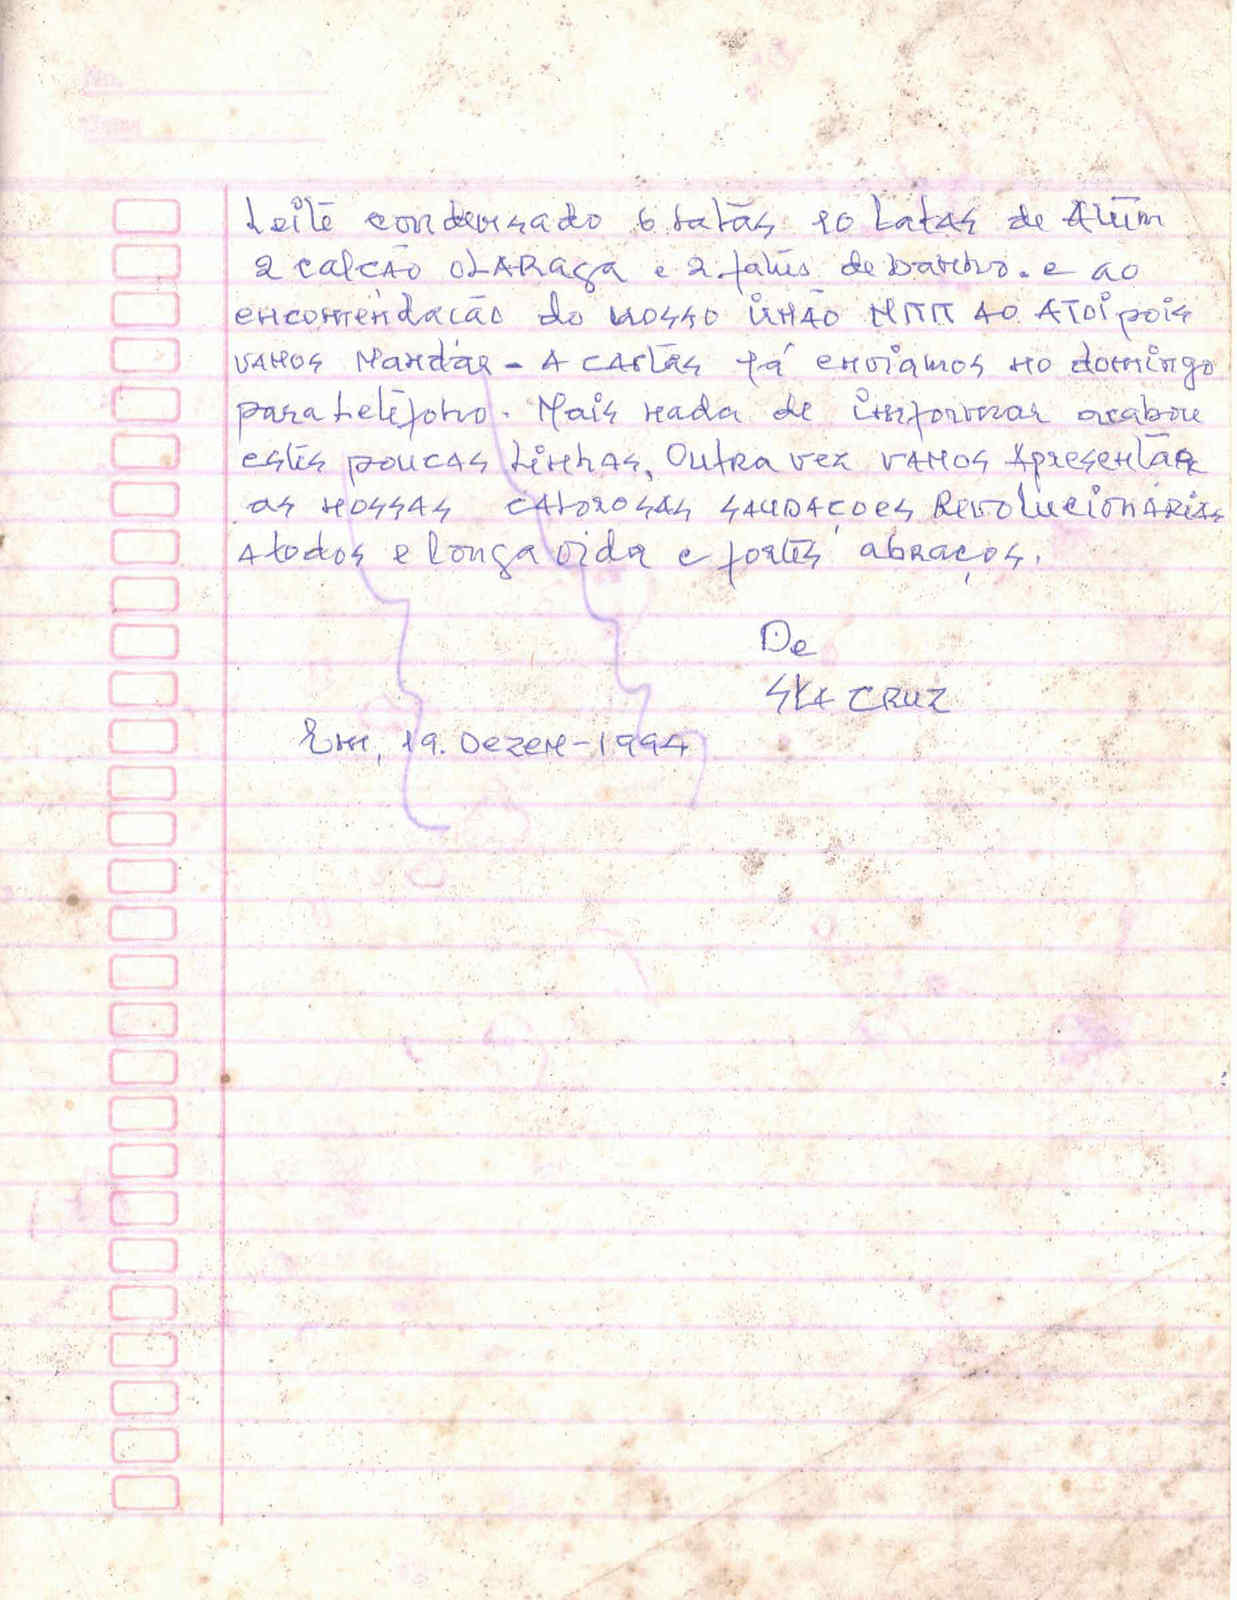 Leite condensado 6 latãs 10 Latas de Atúm
2 calcão OLARAGA e 2 fatis de banho. e ao
encomendacão do nosso irmão MTTT AO ATOI pois
VAMOS Mandár - A CARtãs já enviamos no domingo
para teléfono. Mais nada de imformar acabou
estis poucas Linhas, Outra vez VAMOS Apresentár
as nossas calorosas SAUDAÇOES Revolucionárias
A todos e longa vida e fortis abraços.
De
Sta CRUZ
Em, 19. DEZEM-1994